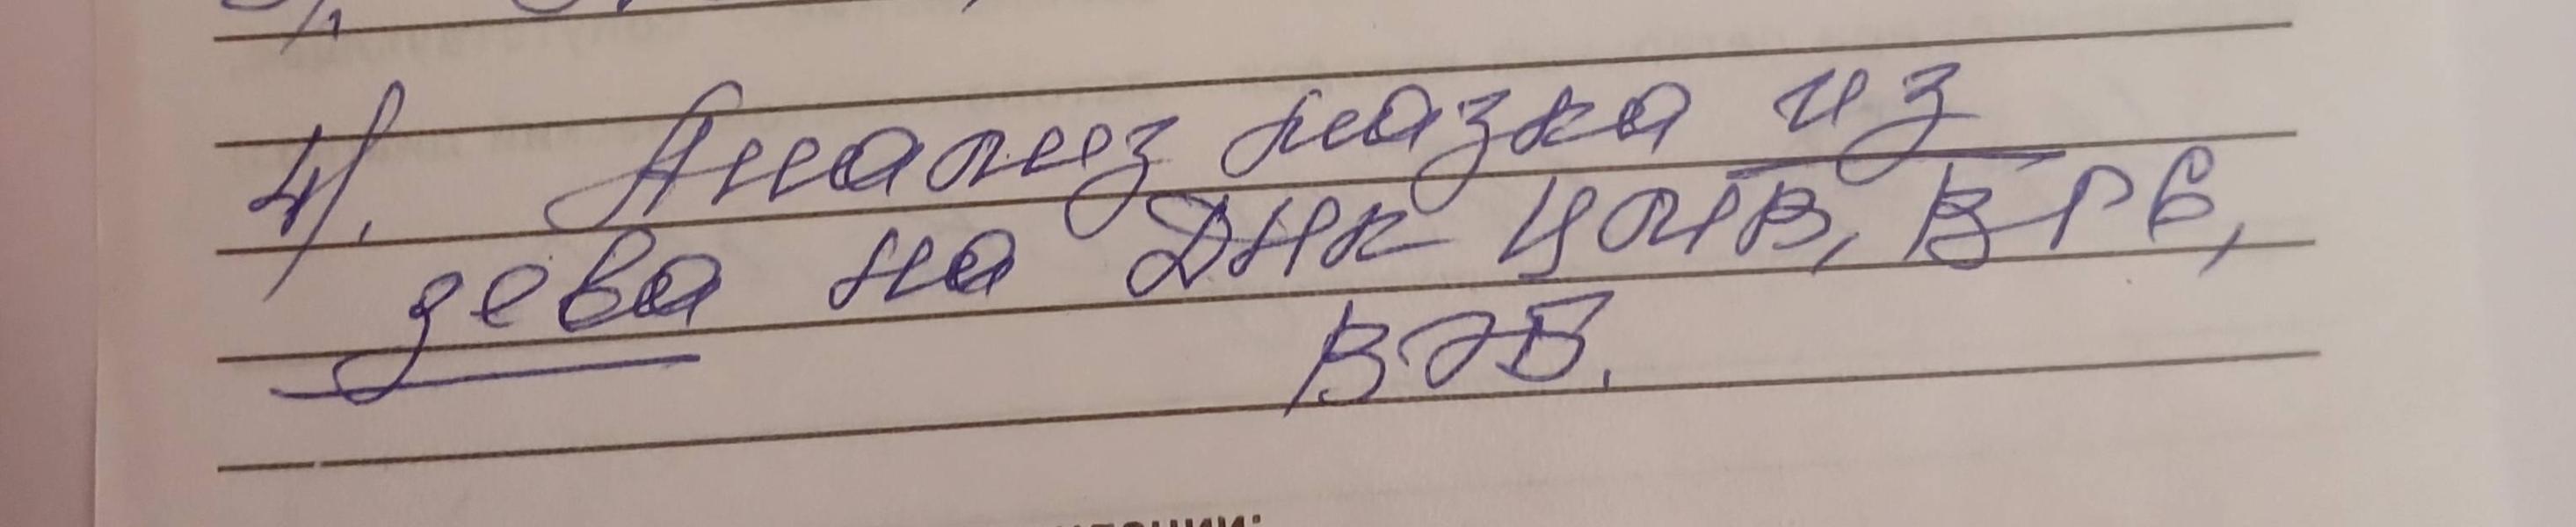 4). Анализ мазка из
зева на ДНК ЦМВ, ВГ6,
ВЭБ.